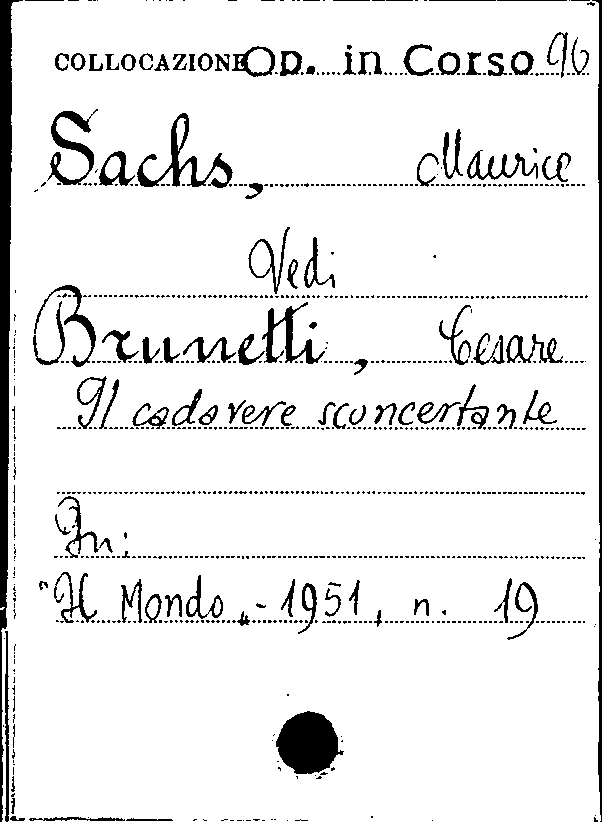 COLLOCAZIONE Op. in Corso 96
Sachs, Maurice
Vedi
Brunetti, Cesare
Il cadavere sconcertante
In:
"Il Mondo„ - 1951, n. 19